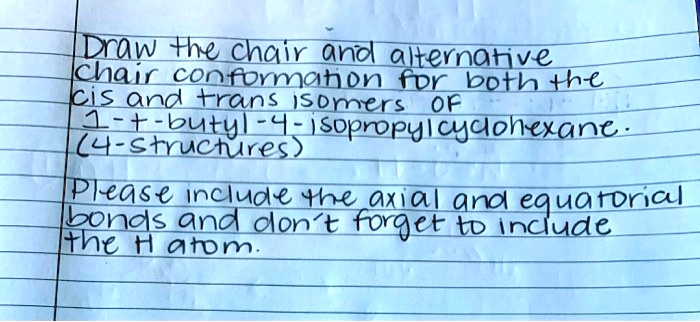 Draw the chair and alternative
chair conformation for both the
cis and trans isomers OF
1-t-butyl-4-isopropylcyclohexane.
(4-structures)
Please include the axial and equatorial
bonds and don't forget to include
the H atom.